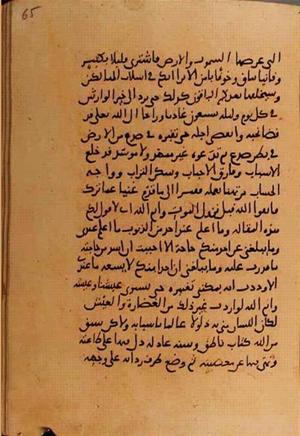 65
التي عرضها السموات والارض واشترى قليلا بكثير
وفانيا بباق وخوفا بامن الا تروا انكم في اسلاب الهالكين
وسيخلفها بعدكم الباقون كذلك حتى يرد الى خير الوارثين
في كل يوم وليلة تشيعون غاديا ورائحا الى الله تعالى قد
قضا نحبه وانقضى اجله حتى تغيبوه في صدع من الارض
في بطن صدع ثم تدعوه غير ممهد ولا موسد قد خلع
الاسباب وفارق الاحباب وسكن التراب وواجه
الحساب مرتهنا بعمله فقيرا الى ما قدم غنيا عما ترك
فاتقوا الله قبل نزول الموت وايم الله اني لاقول لكم
هذه المقالة وما اعلم عند احد من الذنوب ما اعلم عندي
وما يبلغني عن احد منكم حاجة الا احببت ان اسد من حاجته
ما قدرت عليه وما يبلغني ان احدا منكم لا يسعه ما عندي
الا وددت انه يمكنني تغييره حتى يستوي عيشنا وعيشه
وايم الله لو اردت غير ذلك من الغضارة والعيش
لكان اللسان مني به ذلولا عالما باسبابه ولكن سبق
من الله كتاب ناطق وسنة عادلة دل فيها على طاعته
ونهى فيها عن معصيته ثم وضع طرف ردائه على وجهه